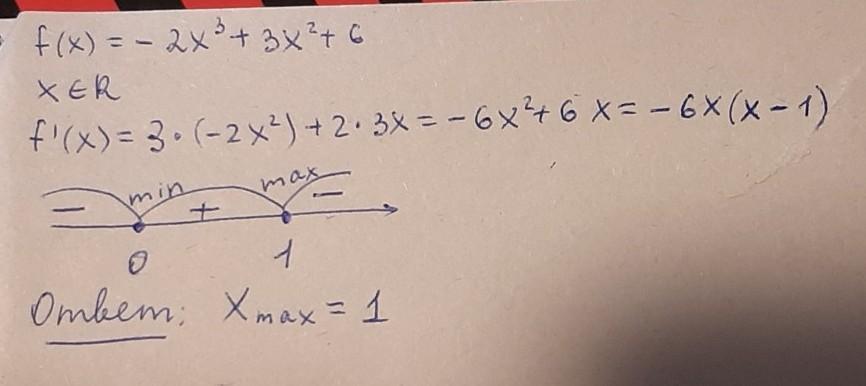 f(x) = - 2x³ + 3x² + 6
x ∈ R
f'(x) = 3 · (-2x²) + 2 · 3x = -6x² + 6x = -6x(x - 1)
min max
- + -
0 1
Ответ: Xmax = 1